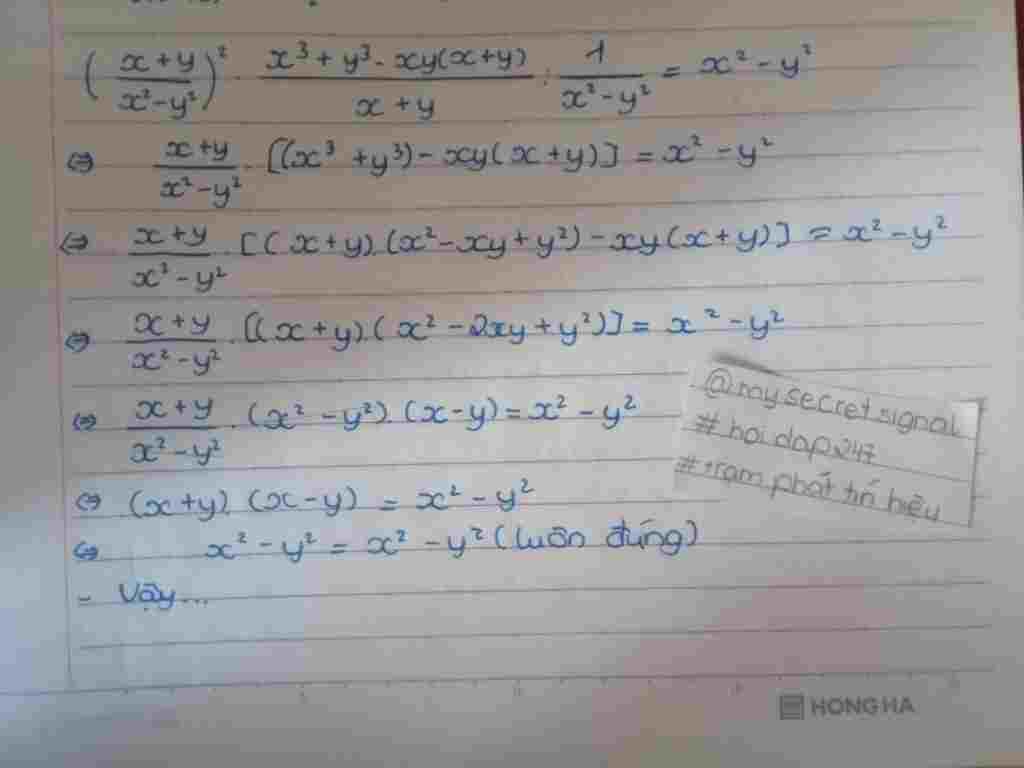 ((x+y)/(x²-y²))² · (x³+y³-xy(x+y))/(x+y) : 1/(x²-y²) = x²-y²
⇔ (x+y)/(x²-y²) · [(x³+y³)-xy(x+y)] = x²-y²
⇔ (x+y)/(x²-y²) · [(x+y).(x²-xy+y²)-xy(x+y)] = x²-y²
⇔ (x+y)/(x²-y²) · [(x+y)(x²-2xy+y²)] = x²-y²
⇔ (x+y)/(x²-y²) · (x²-y²).(x-y) = x²-y²
⇔ (x+y).(x-y) = x²-y²
⇔ x²-y² = x²-y² (luôn đúng)
- Vậy...
@mysecretsignal
#hoidap247
#trạm phát tín hiệu
HONG HA